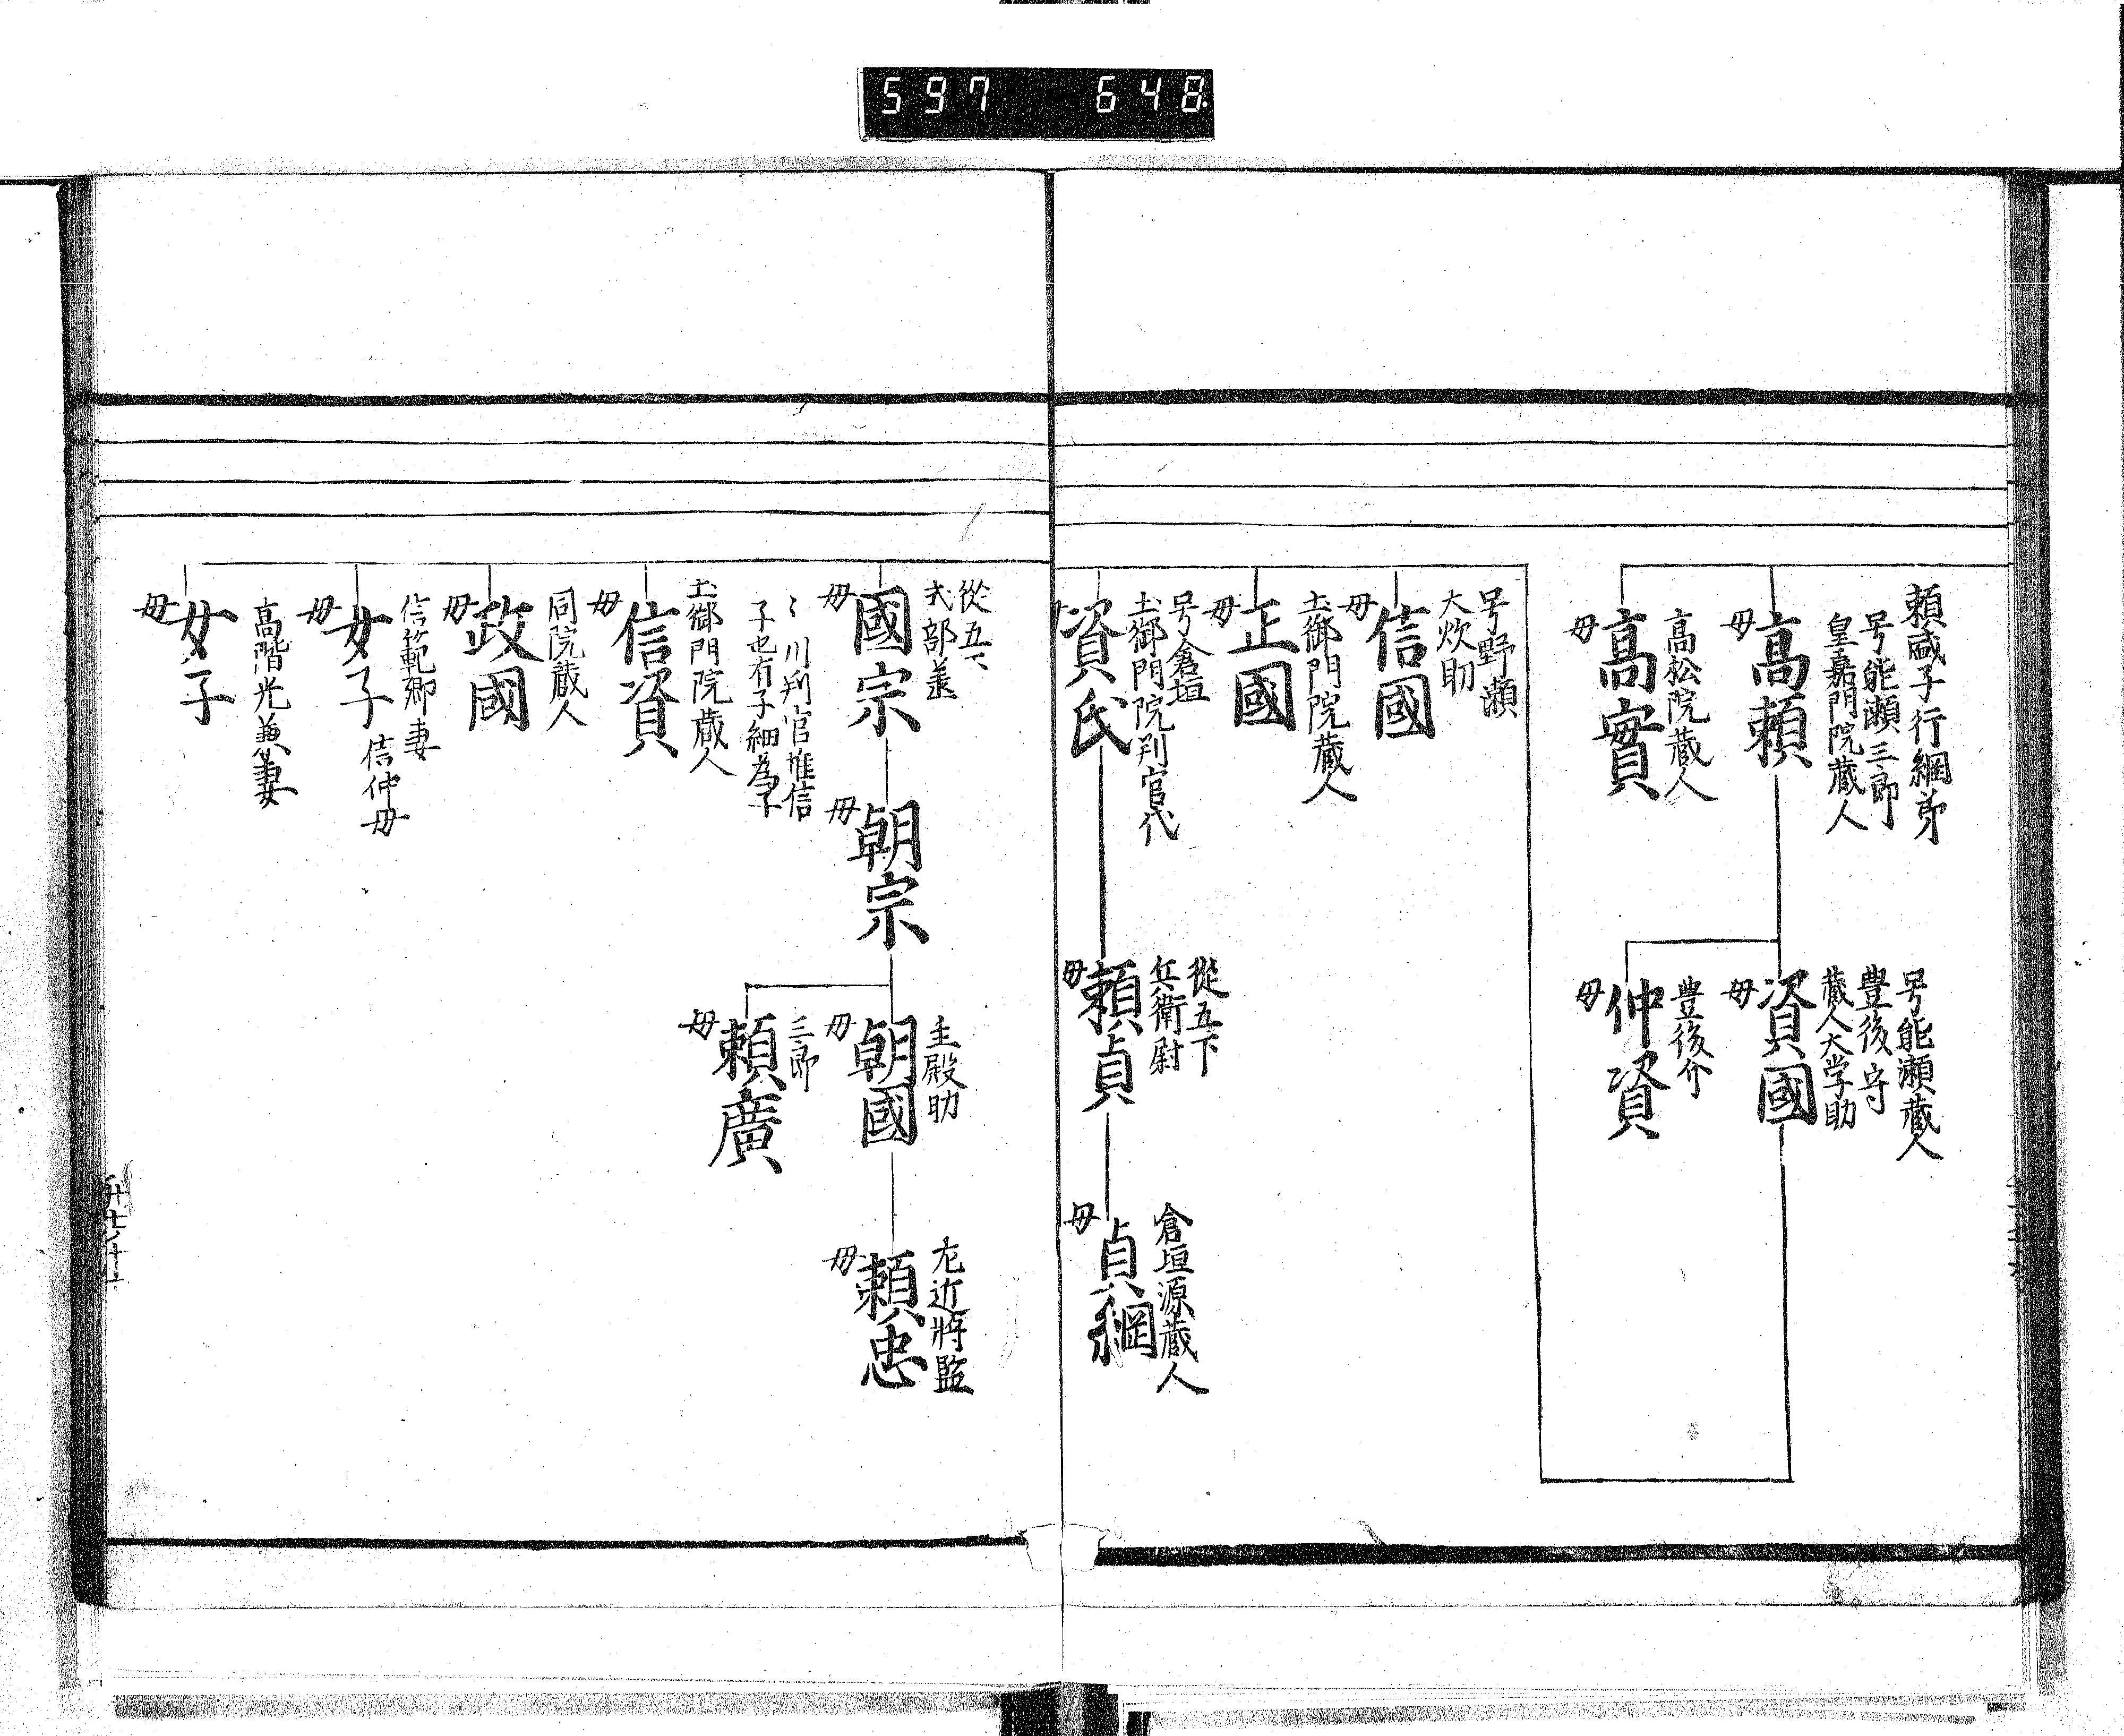 597 648
頼盛子行綱弟
号能瀬三郎
皇嘉門院蔵人
高頼
母
高松院蔵人
高實
母
号能瀬蔵人
豊後守
蔵人大学助
資國
母
豊後介
仲資
母
号野瀬
大炊助
信國
母
土御門院蔵人
正國
母
号倉垣
土御門院判官代
資氏
母
從五下
兵衛尉
頼貞
母
倉垣源蔵人
貞綱
母
從五下
式部丞
國宗
母
朝宗
母
主殿助
朝國
母
左近将監
頼忠
母
三郎
頼廣
母
川判官惟信
子也有子細為子
土御門院蔵人
信資
母
同院蔵人
政國
母
信範卿妻
信仲母
女子
母
高階光兼妻
女子
母